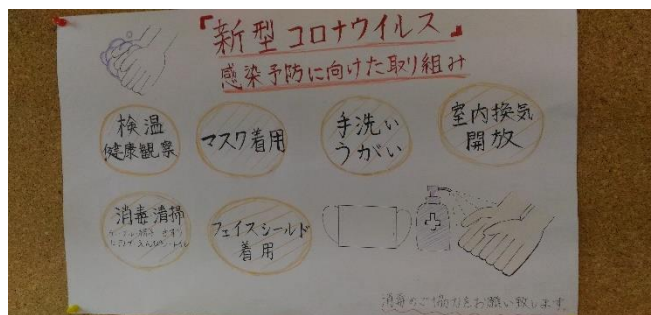 『新型コロナウイルス』
感染予防に向けた取り組み
検温
健康観察
マスク着用
手洗い
うがい
室内換気
開放
消毒清掃
フェイスシールド
着用
消毒のご協力をお願い致します